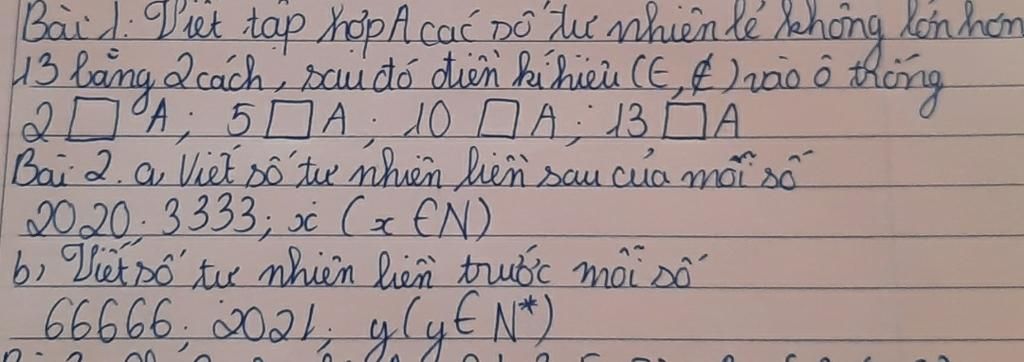 Bài 1. Viết tập hợp A các số tự nhiên lẻ không lớn hơn
13 bằng 2 cách, sau đó điền kí hiệu (∈, ∉) vào ô trống
2 □ A; 5 □ A; 10 □ A; 13 □ A
Bài 2. a, Viết số tự nhiên liền sau của mỗi số
2020; 3333; x (x ∈ N)
b, Viết số tự nhiên liền trước mỗi số
66666; 2021; y (y ∈ N*)